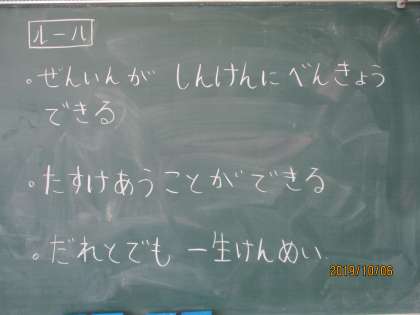 ルール
。ぜんいんが しんけんに べんきょう
できる
。たすけあうことができる
。だれとでも 一生けんめい
2019/10/06